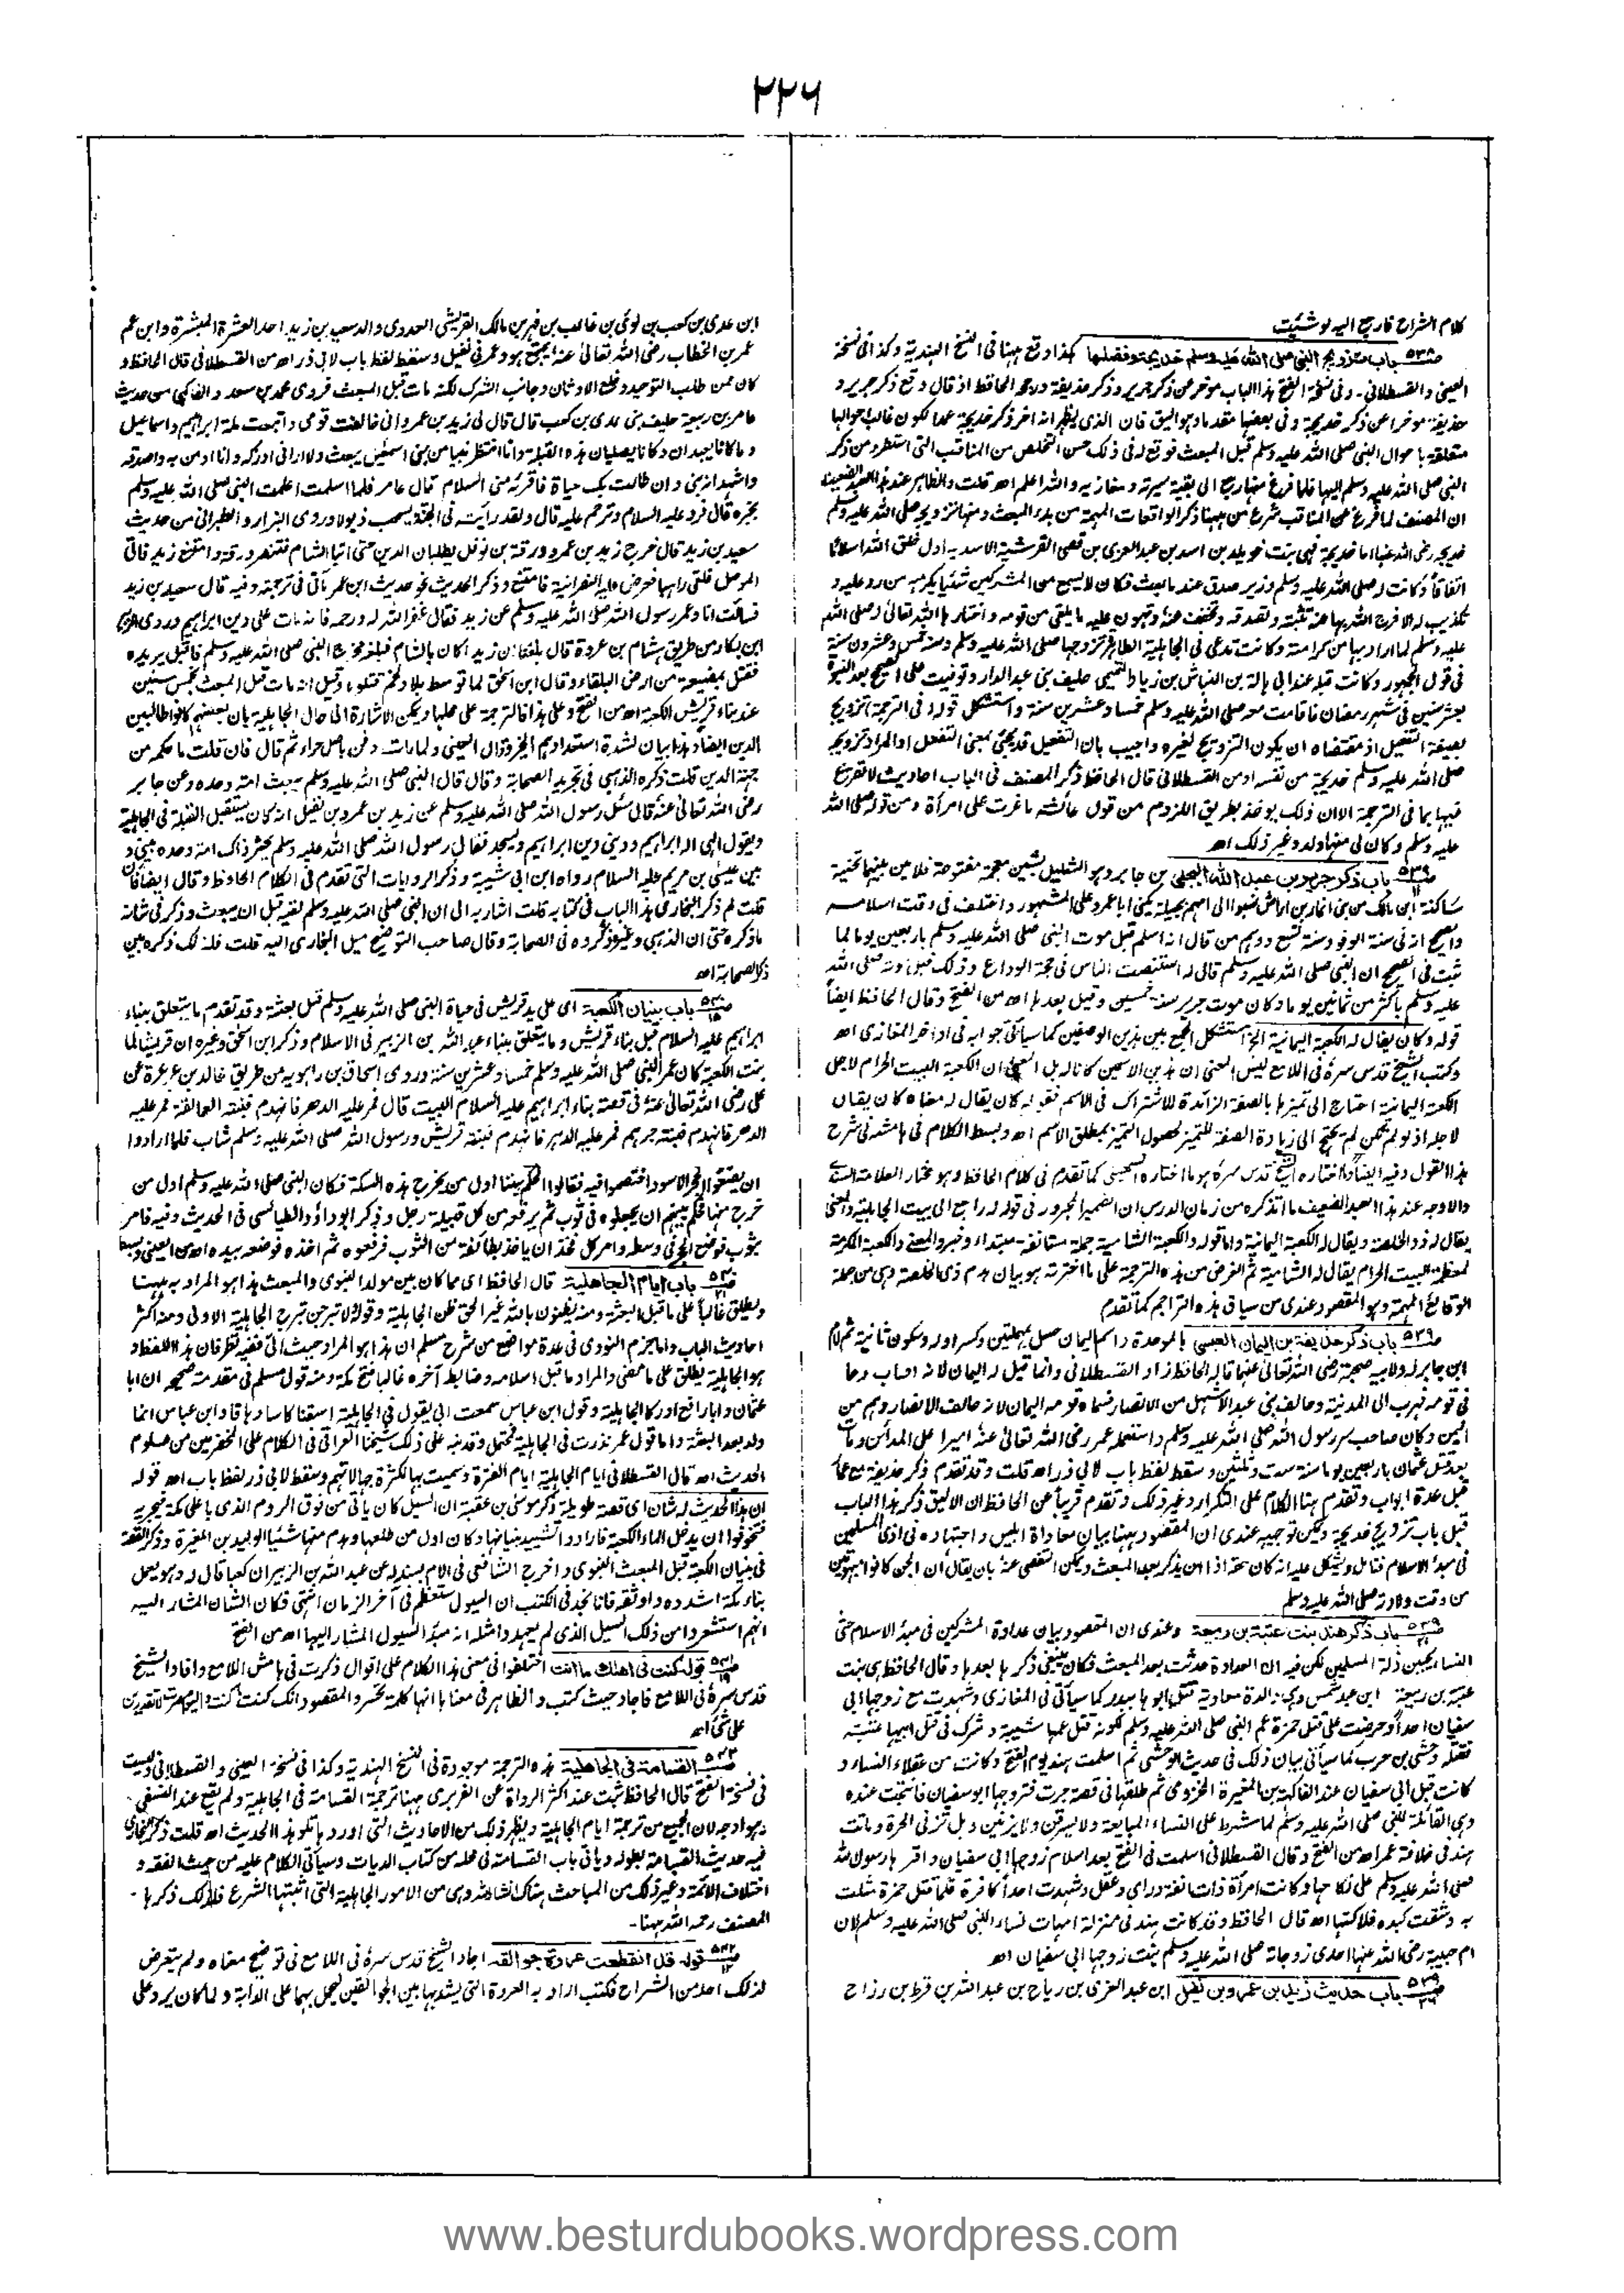 ۲۲۶
كلام الشراح فارجع اليه لو شئت
باب تزويج النبي صلى الله عليه وسلم خديجة وفضلها كذا وقع ههنا في النسخ الهندية وكذا في نسخة
العيني والقسطلاني۔ وفي نسخة الفتح هذا الباب مؤخر من ذكر جرير وذكر حذيفة ووجه الحافظ اذ قال وقع ذكر جرير و
حذيفة مؤخرا عن ذكر خديجة وفي بعضها مقدما وهو اليق فان الذي يظهر انه اخر ذكر خديجة عمدا لكون غالب احوالها
متعلقة باحوال النبي صلى الله عليه وسلم قبل المبعث فوقع له في ذلك حسن التخلص من المناقب التي استطرد من ذكر
النبي صلى الله عليه وسلم اليها فلما فرغ منها رجع الى بقية سيرته ومغازيه والله اعلم اه قلت والظاهر عند هذا العبد الضعيف
ان المصنف لما فرغ عن المناقب شرع من ههنا ذكر الواقعات المهمة من بدء المبعث ومنها تزويجه صلى الله عليه وسلم
خديجة رضى الله عنها اما خديجة فهي بنت خويلد بن اسد بن عبد العزى بن قصى القرشية الاسدية اول خلق الله اسلاما
اتفاقا وكانت له صلى الله عليه وسلم وزير صدق عند ما بعث فكان لا يسمع من المشركين شيئا يكرهه من رد عليه و
تكذيب له الا فرج الله بها عنه تثبته وتصدقه وتخفف عنه وتهون عليه ما يلقى من قومه واختارها الله تعالى له صلى الله
عليه وسلم لما اراد بها من كرامته وكانت تدعى في الجاهلية الطاهرة تزوجها صلى الله عليه وسلم وسنه خمس وعشرون سنة
في قول الجمهور وكانت قبله عند ابي هالة بن النباش بن زياد التميمي حليف بني عبد الدار وتوفيت على الصحيح بعد النبوة
بعشر سنين في شهر رمضان فاقامت معه صلى الله عليه وسلم خمسا وعشرين سنة واستشكل قوله في الترجمة تزويج
بصيغة التفعيل اذ مقتضاه ان يكون التزويج لغيره واجيب بان التفعيل قد يجئ بمعنى التفعل او المراد تزويجه
صلى الله عليه وسلم خديجة من نفسه اه من القسطلاني قال الحافظ ذكر المصنف في الباب احاديث لا تصريح
فيها بما في الترجمة الا ان ذلك يؤخذ بطريق اللزوم من قول عائشة ما غرت على امرأة ومن قوله صلى الله
عليه وسلم وكان لي منها ولد وغير ذلك اه
باب ذكر جرير بن عبد الله البجلي بن جابر وهو الشليل بشين معجمة مفتوحة فلامين بينهما تحتية
ساكنة ابن مالك من بني انمار بن اراش نسبوا الى امهم بجيلة يكنى ابا عمرو على المشهور واختلف في وقت اسلامه
والصحيح انه في سنة الوفود سنة تسع ووهم من قال انه اسلم قبل موت النبي صلى الله عليه وسلم باربعين يوما لما
ثبت في الصحيح ان النبي صلى الله عليه وسلم قال له استنصت الناس في حجة الوداع وذلك قبل موته صلى الله
عليه وسلم باكثر من ثمانين يوما وكان موت جرير سنة خمسين وقيل بعدها اه من الفتح وقال الحافظ ايضاً
قوله وكان يقال له الكعبة اليمانية الخ استشكل الجمع بين هذين الوصفين كما سيأتي جوابه في اواخر المغازي اه
وكتب الشيخ قدس سره في اللامع ليس المعنى ان هذين الاسمين كانا له بل المعنى ان الكعبة البيت الحرام لاجل
الكعبة اليمانية احتاج الى تميزها بالصفة الزائدة للاشتراك في الاسم فقوله كان يقال له معناه كان يقال
لاجله اذ لو لم تكن لم يحتج الى زيادة الصفة للتميز لحصول التميز بمطلق الاسم اه وبسط الكلام في هامشه في شرح
هذا القول وفيه ايضاً وما اختاره الشيخ قدس سره هو ما اختاره السهيلي كما تقدم في كلام الحافظ وهو مختار العلامة السندي
والاوجه عند هذا العبد الضعيف ما اتذكره من زمان الدرس ان الضمير المجرور في قوله له راجع الى بيت الجاهلية والمعنى
يقال له ذو الخلصة ويقال له الكعبة اليمانية واما قوله والكعبة الشامية جملة مستانفة مبتداء وخبر والمعنى والكعبة المكرمة
لعظمة البيت الحرام يقال له الشامية ثم الغرض من هذه الترجمة على ما اخترته هو بيان هدم ذي الخلصة وهي من جملة
الوقائع المهمة وهو المقصود عندى من سياق هذه التراجم كما تقدم
باب ذكر حذيفة بن اليمان العبسي بالموحدة واسم اليمان حسل بمهملتين وكسر اوله وسكون ثانية ثم لام
ابن جابر له ولابيه صحبة رضى الله تعالى عنهما قاله الحافظ زاد القسطلاني وانما قيل له اليمان لانه اصاب دما
في قومه فهرب الى المدينة وحالف بني عبد الاشهل من الانصار فسماه قومه اليمان لانه حالف الانصار وهم من
اليمن وكان صاحب سر رسول الله صلى الله عليه وسلم واستعمله عمر رضى الله تعالى عنه اميرا على المدائن ومات
بعد قتل عثمان باربعين يوما سنة ست وثلثين وسقط لفظ باب لابي ذر اه قلت وقد تقدم ذكر حذيفة مع عمار
قبل عدة ابواب وتقدم هنا الكلام على التكرار وغير ذلك وتقدم قريباً عن الحافظ ان الاليق ذكر هذا الباب
قبل باب تزويج خديجة ويمكن توجيهه عندي ان المقصود ههنا بيان معاداة ابليس واجتهاده في اذى المسلمين
في مبدأ الاسلام فتامل ويشكل عليه انه كان حقه اذا ان يذكر بعد المبعث ويمكن التفصى عنه بان يقال ان الجن كانوا
من وقت ولادته صلى الله عليه وسلم
باب ذكر هند بنت عتبة بن ربيعة وعندي ان المقصود بيان عداوة المشركين في مبدأ الاسلام حتى
النساء يحببن ذلة المسلمين لكن فيه ان العداوة حدثت بعد المبعث فكان ينبغي ذكرها بعدها وقال الحافظ هي بنت
عتبة بن ربيعة ابن عبد شمس وهي والدة معاوية قتل ابوها ببدر كما سيأتي في المغازي وشهدت مع زوجها ابي
سفيان احداً وحرضت على قتل حمزة عم النبي صلى الله عليه وسلم لكونه قتل عمها شيبة وشرك في قتل ابيها عتبة
فقتله وحشي بن حرب كما سيأتي بيان ذلك في حديث الوحشي ثم اسلمت هند يوم الفتح وكانت من عقلاء النساء و
كانت قبل ابي سفيان عند الفاكه بن المغيرة المخزومي ثم طلقها في قصة جرت فتزوجها ابو سفيان فانتجت عنده
وهي القائلة للنبي صلى الله عليه وسلم لما شرط على النساء المبايعة ولا يسرقن ولا يزنين وهل تزني الحرة وماتت
هند في خلافة عمر اه من الفتح وقال القسطلاني اسلمت في الفتح بعد اسلام زوجها ابي سفيان واقرها رسول الله
صلى الله عليه وسلم على نكاحها وكانت امرأة ذات انفة وراى وعقل وشهدت احداً كافرة فلما قتل حمزة مثلت
به وشقت كبده فلاكتها اه قال الحافظ وقد كانت هند في منزلة امهات نساء النبي صلى الله عليه وسلم لان
ام حبيبة رضى الله عنها احدى زوجاته صلى الله عليه وسلم بنت زوجها ابي سفيان اه
باب حديث زيد بن عمرو بن نفيل ابن عبد العزى بن رياح بن عبد الله بن قرط بن رزاح
ابن عدى بن كعب بن لوئي بن غالب بن فهر بن مالك القريشي العدوى والد سعيد بن زيد احد العشرة المبشرة وابن عم
عمر بن الخطاب رضى الله تعالى عنه يجتمع هو وعمر في نفيل وسقط لفظ باب لابي ذر اه من القسطلاني قال الحافظ و
كان ممن طلب التوحيد وخلع الاوثان وجانب الشرك لكنه مات قبل المبعث فروى محمد بن سعد والفاكهي من حديث
عامر بن ربيعة حليف بني عدى بن كعب قال قال لي زيد بن عمرو اني خالفت قومي واتبعت ملة ابراهيم واسماعيل
وما كانا يعبدان وكانا يصليان هذه القبلة وانا انتظر نبيا من بني اسمعيل يبعث ولا اراني ادركه وانا اومن به واصدقه
واشهد انه نبي وان طالت بك حياة فاقرئه مني السلام قال عامر فلما اسلمت اعلمت النبي صلى الله عليه وسلم
بخبره قال فرد عليه السلام وترحم عليه قال ولقد رأيته في الجنة يسحب ذيولا وروى البزار والطبراني من حديث
سعيد بن زيد قال خرج زيد بن عمرو وورقة بن نوفل يطلبان الدين حتى اتيا الشام فتنصر ورقة وامتنع زيد فاتى
الموصل فلقي راهبا فعرض عليه النصرانية فامتنع وذكر الحديث نحو حديث ابن عمر الآتي في ترجمته وفيه قال سعيد بن زيد
فسألت انا وعمر رسول الله صلى الله عليه وسلم عن زيد فقال غفر الله له ورحمه فانه مات على دين ابراهيم وروى الزبير
ابن بكار من طريق هشام بن عروة قال بلغنا ان زيدا كان بالشام فبلغه مخرج النبي صلى الله عليه وسلم فاقبل يريده
فقتل بمضيعة من ارض البلقاء وقال ابن اسحق لما توسط بلاد لخم قتلوه وقيل انه مات قبل المبعث بخمس سنين
عند بناء قريش الكعبة اه من الفتح وعلى هذا فالترجمة على محلها ويمكن الاشارة الى حال الجاهلية بان بعضهم كانوا طالبين
الدين ايضا وهذا بيان لشدة استعدادهم الخ وقال العيني ولما مات دفن باصل حراء ثم قال فان قلت ما حكمه من
جهة الدين قلت ذكره الذهبي في تجريد الصحابة وقال قال النبي صلى الله عليه وسلم يبعث امة وحده وعن جابر
رضى الله تعالى عنه قال سئل رسول الله صلى الله عليه وسلم عن زيد بن عمرو بن نفيل انه كان يستقبل القبلة في الجاهلية
ويقول الهي اله ابراهيم وديني دين ابراهيم ويسجد فقال رسول الله صلى الله عليه وسلم يحشر ذاك امة وحده بيني و
بين عيسى بن مريم عليه السلام رواه ابن ابي شيبة وذكر الروايات التي تقدم في الكلام الحافظ وقال ايضا فان
قلت لم ذكر البخاري هذا الباب في كتابه قلت اشار به الى ان النبي صلى الله عليه وسلم لقيه قبل ان يبعث وذكر في شانه
ما ذكره حتى ان الذهبي وغيره ذكروه في الصحابة وقال صاحب التوضيح ميل البخاري اليه قلت فلذلك ذكره بين
ذكر الصحابة اه
باب بنيان الكعبة اى على يد قريش في حياة النبي صلى الله عليه وسلم قبل بعثته وقد تقدم ما يتعلق ببناء
ابراهيم عليه السلام قبل بناء قريش وما يتعلق ببناء عبد الله بن الزبير في الاسلام وذكر ابن اسحق وغيره ان قريشا لما
بنت الكعبة كان عمر النبي صلى الله عليه وسلم خمسا وعشرين سنة وروى اسحاق بن راهويه من طريق خالد بن عرعرة عن
على رضى الله تعالى عنه في قصة بناء ابراهيم عليه السلام البيت قال فمر عليه الدهر فانهدم فبنته العمالقة فمر عليه
الدهر فانهدم فبنته جرهم فمر عليه الدهر فانهدم فبنته قريش ورسول الله صلى الله عليه وسلم شاب فلما ارادوا
ان يضعوا الحجر الاسود اختصموا فيه فقالوا الحكم بيننا اول من يخرج من هذه السكة فكان النبي صلى الله عليه وسلم اول من
خرج منها فحكم بينهم ان يجعلوه في ثوب ثم يرفعه من كل قبيلة رجل وذكر ابو داؤد الطيالسي في الحديث وفيه فامر
بثوب فوضع الحجر في وسطه وامر كل فخذ ان ياخذ بطائفة من الثوب فرفعوه ثم اخذه فوضعه بيده اه من العيني
باب ايام الجاهلية قال الحافظ اى مما كان بين مولد النبوي والمبعث هذا هو المراد به ههنا
ويطلق غالباً على ما قبل البعثة ومنه يظنون بالله غير الحق ظن الجاهلية وقوله ولا تبرجن تبرج الجاهلية الاولى ومنه اكثر
احاديث الباب واما جزم النووي في عدة مواضع من شرح مسلم ان هذا هو المراد حيث اتى ففيه نظر فان هذا اللفظ و
هو الجاهلية يطلق على ما مضى والمراد ما قبل اسلامه وضابط آخره غالبا فتح مكة ومنه قول مسلم في مقدمة صحيحه ان ابا
عثمان وابا رافع ادركا الجاهلية وقول ابن عباس سمعت ابي يقول في الجاهلية اسقنا كاسا دهاقا وابن عباس انما
ولد بعد البعثة واما قول عمر نذرت في الجاهلية فمحتمل وقد نبه على ذلك شيخنا العراقي في الكلام على المخضرمين من علوم
الحديث اه قال القسطلاني ايام الجاهلية ايام الفترة وسميت بها لكثرة جهالاتهم وسقط لابي ذر لفظ باب اه قوله
ان هذا الحديث له شان اى قصة طويلة ذكر موسى بن عقبة ان السيل كان ياتي من فوق الردم الذي باعلى مكة فيجريه
فتخوفوا ان يدخل الماء الكعبة فارادوا تشييد بنيانها وكان اول من طلعها وهدم منها شيئا الوليد بن المغيرة وذكر القصة
في بنيان الكعبة قبل المبعث النبوي واخرج الشافعي في الام بسند له عن عبد الله بن الزبير ان كعبا قال له وهو يعمل
بناء مكة اشدده واوثقه فانا نجد في الكتب ان السيول ستعظم في آخر الزمان انتهى فكان الشان المشار اليه
انهم استشعروا من ذلك السيل الذي لم يعهدوا مثله انه مبدأ السيول المشار اليها اه من الفتح
قوله كنت في اهلك ما انت اختلفوا في معنى هذا الكلام على اقوال ذكرت في هامش اللامع وافاد الشيخ
قدس سره في اللامع فاجاد حيث كتب والظاهر في معناها انها كلمة تحسر والمقصود انك كنت كنت واليوم لا تقدرين
على شئ اه
القسامة في الجاهلية هذه الترجمة موجودة في النسخ الهندية وكذا في نسخة العيني والقسطلاني وليست
في نسخة الفتح قال الحافظ ثبت عند اكثر الرواة عن الفربرى ههنا ترجمة القسامة في الجاهلية ولم يقع عند النسفي
وهو اوجه لان الجميع من ترجمة ايام الجاهلية ويظهر ذلك من الاحاديث التي اوردها تلو هذا الحديث اه قلت ذكر البخاري
فيه حديث القسامة بطوله وياتي باب القسامة في محله من كتاب الديات وسيأتي الكلام عليه من حيث الفقه و
اختلاف الائمة وغير ذلك من المباحث هناك انشاء الله وهى من الامور الجاهلية التي اثبتها الشرع فلذلك ذكرها
المصنف رحمه الله ههنا۔
قوله قد انقطعت عروة جوالقه اجاد الشيخ قدس سره في اللامع في توضيح معناه ولم يتعرض
لذلك احد من الشراح فكتب اراد به العروة التي يشد بها بين الجوالقين ليحمل بهما على الدابة ولما كان يرد على
www.besturdubooks.wordpress.com